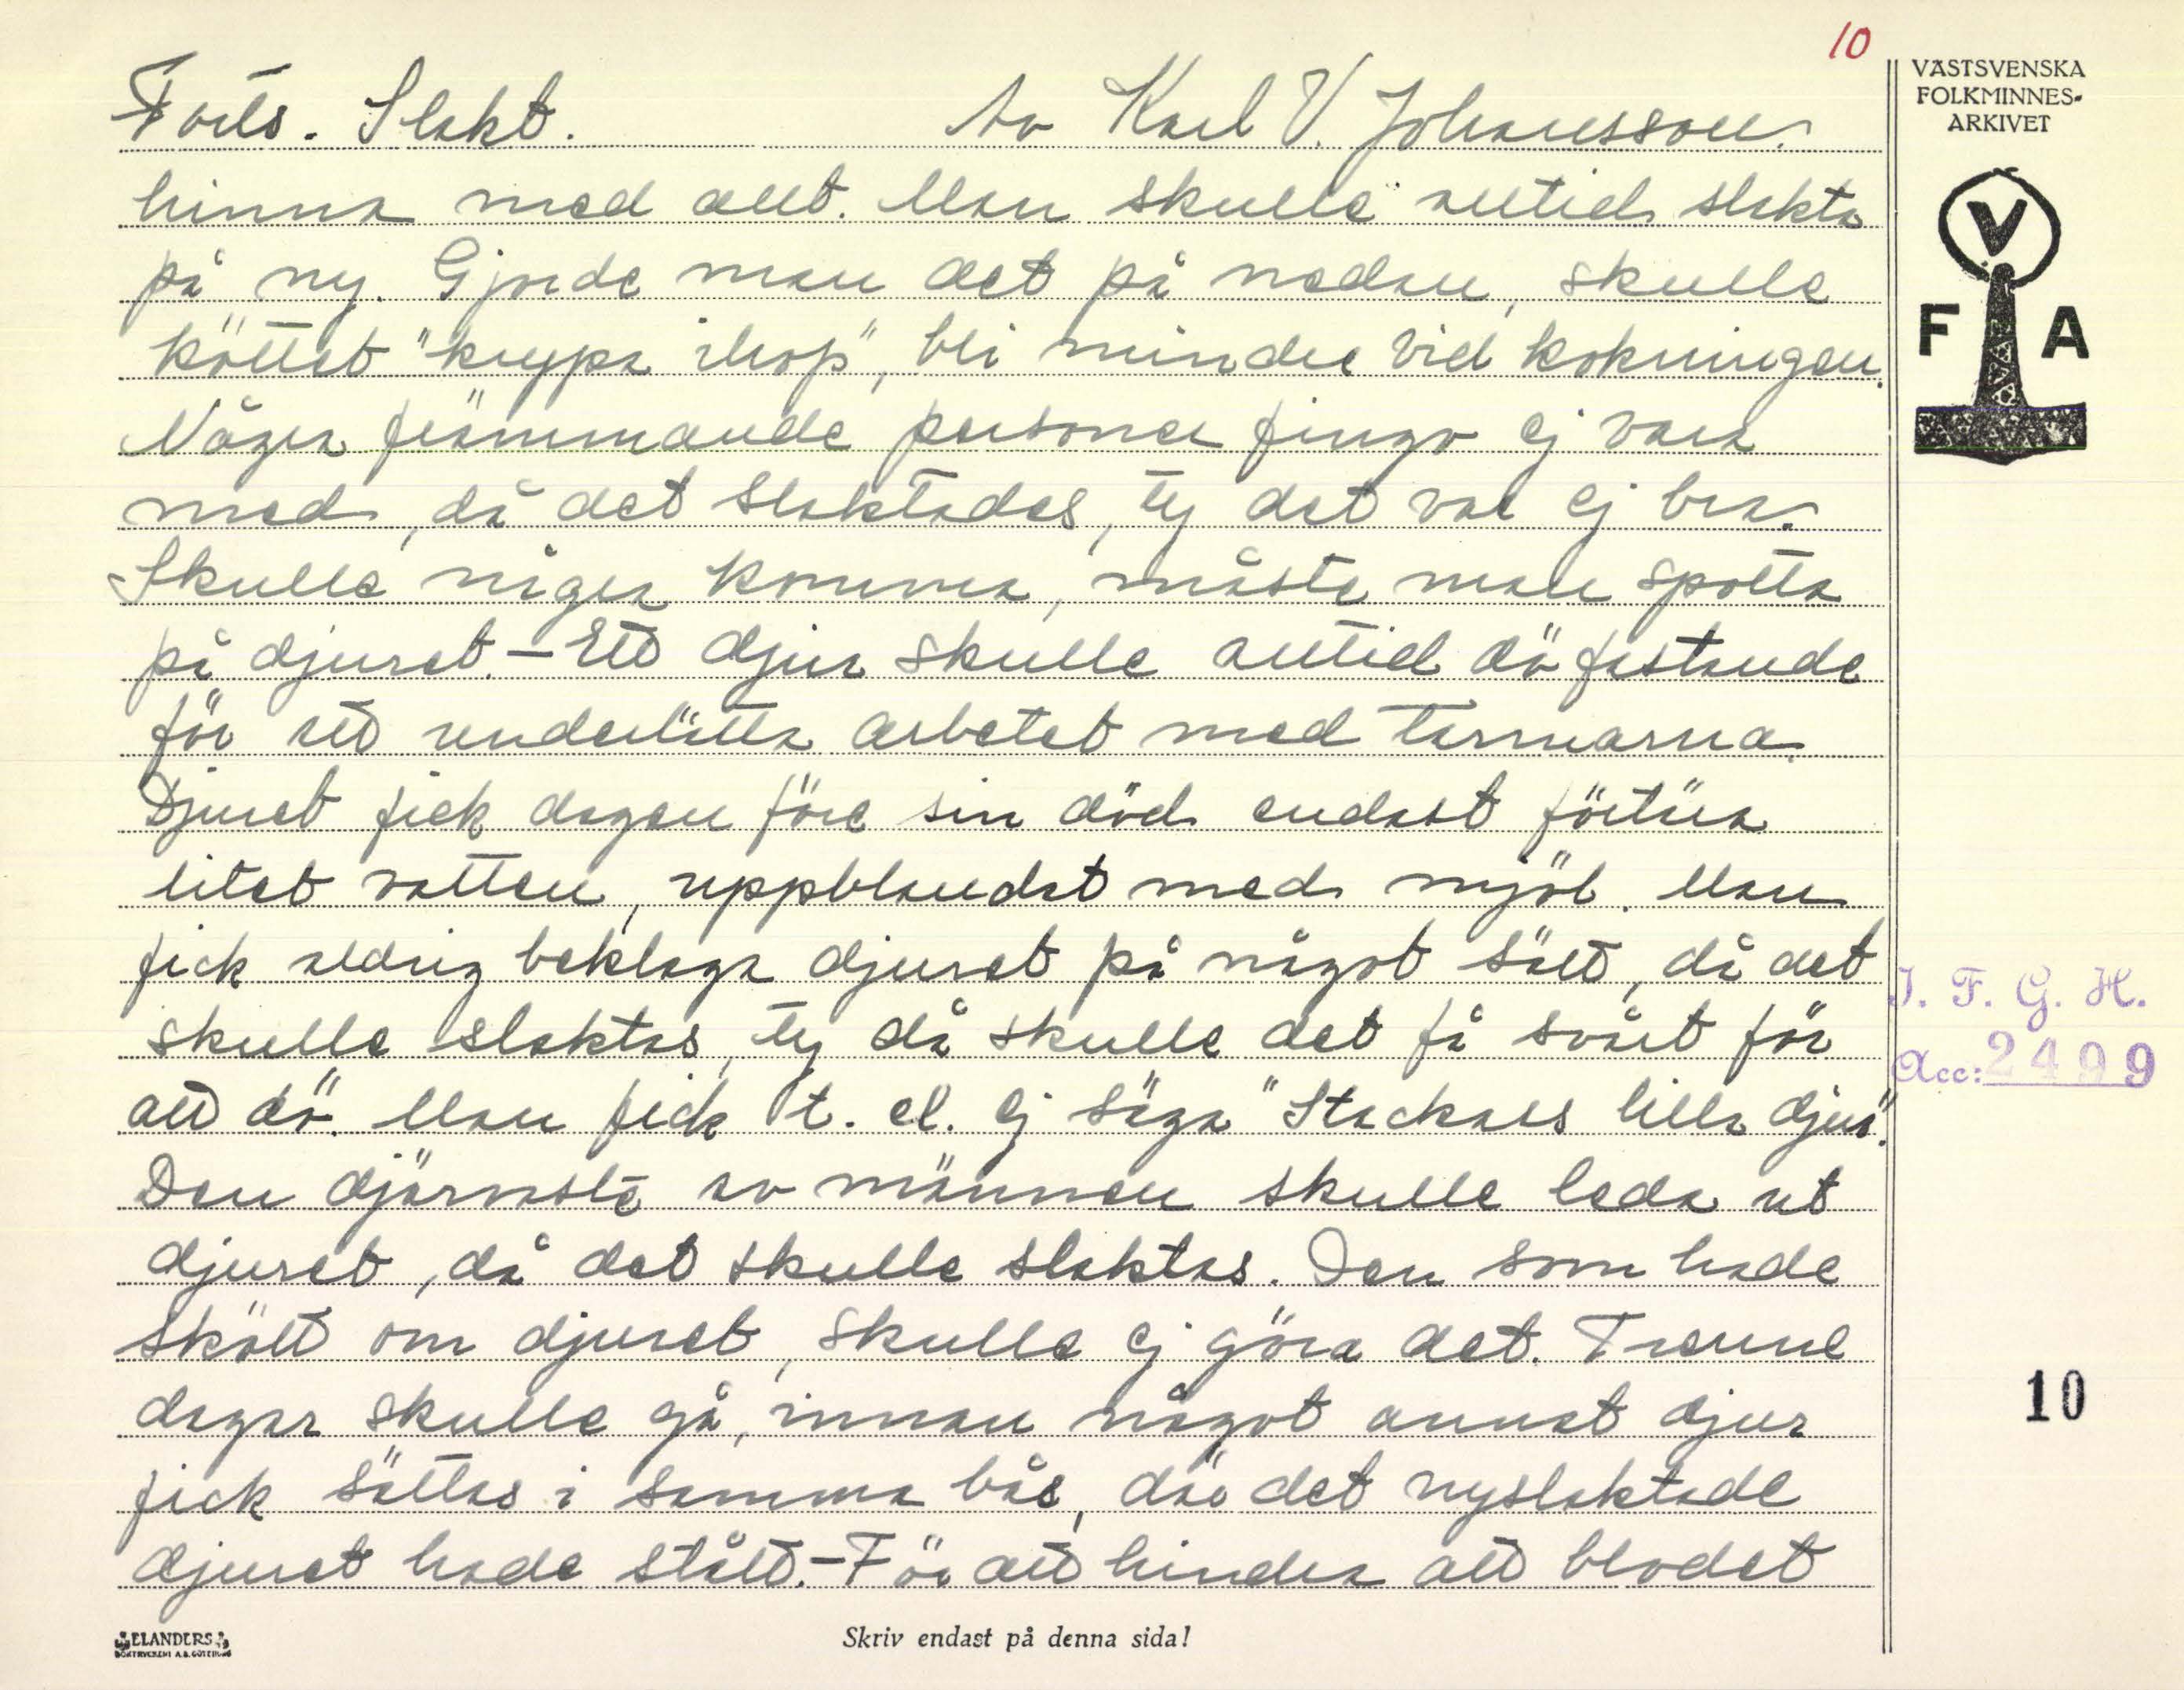 10
VÄSTSVENSKA
FOLKMINNES-
ARKIVET
V
F A
Forts. Slakt. Av Karl V. Johansson.
hinna med allt. Man skulle alltid slakta
på ny. Gjorde man det på nedan, skulle
köttet "krypa ihop", bli mindre vid kokningen.
Några främmande personer fingo ej vara
med, då det slaktades, ty det var ej bra.
Skulle några komma, måste man spotta
på djuret. - Ett djur skulle alltid dö fastande
för att underlätta arbetet med tarmarna.
Djuret fick dagen före sin död endast förtära
litet vatten, uppblandat med mjöl. Man
fick aldrig beklaga djuret på något sätt, då det
skulle slaktas, ty då skulle det få svårt för
att dö. Man fick t. el. ej säga "Stackars lilla djur".
Den djärvaste av männen skulle leda ut
djuret, då det skulle slaktas. Den som hade
skött om djuret, skulle ej göra det. Trenne
dagar skulle gå, innan något annat djur
fick sättas i samma bås, där det nyslaktade
djuret hade stått. - För att hindra att blodet
I. F. G. H.
Acc: 2499
10
ELANDERS
BOKTRYCKERI A.B. GÖTEBORG
Skriv endast på denna sida!